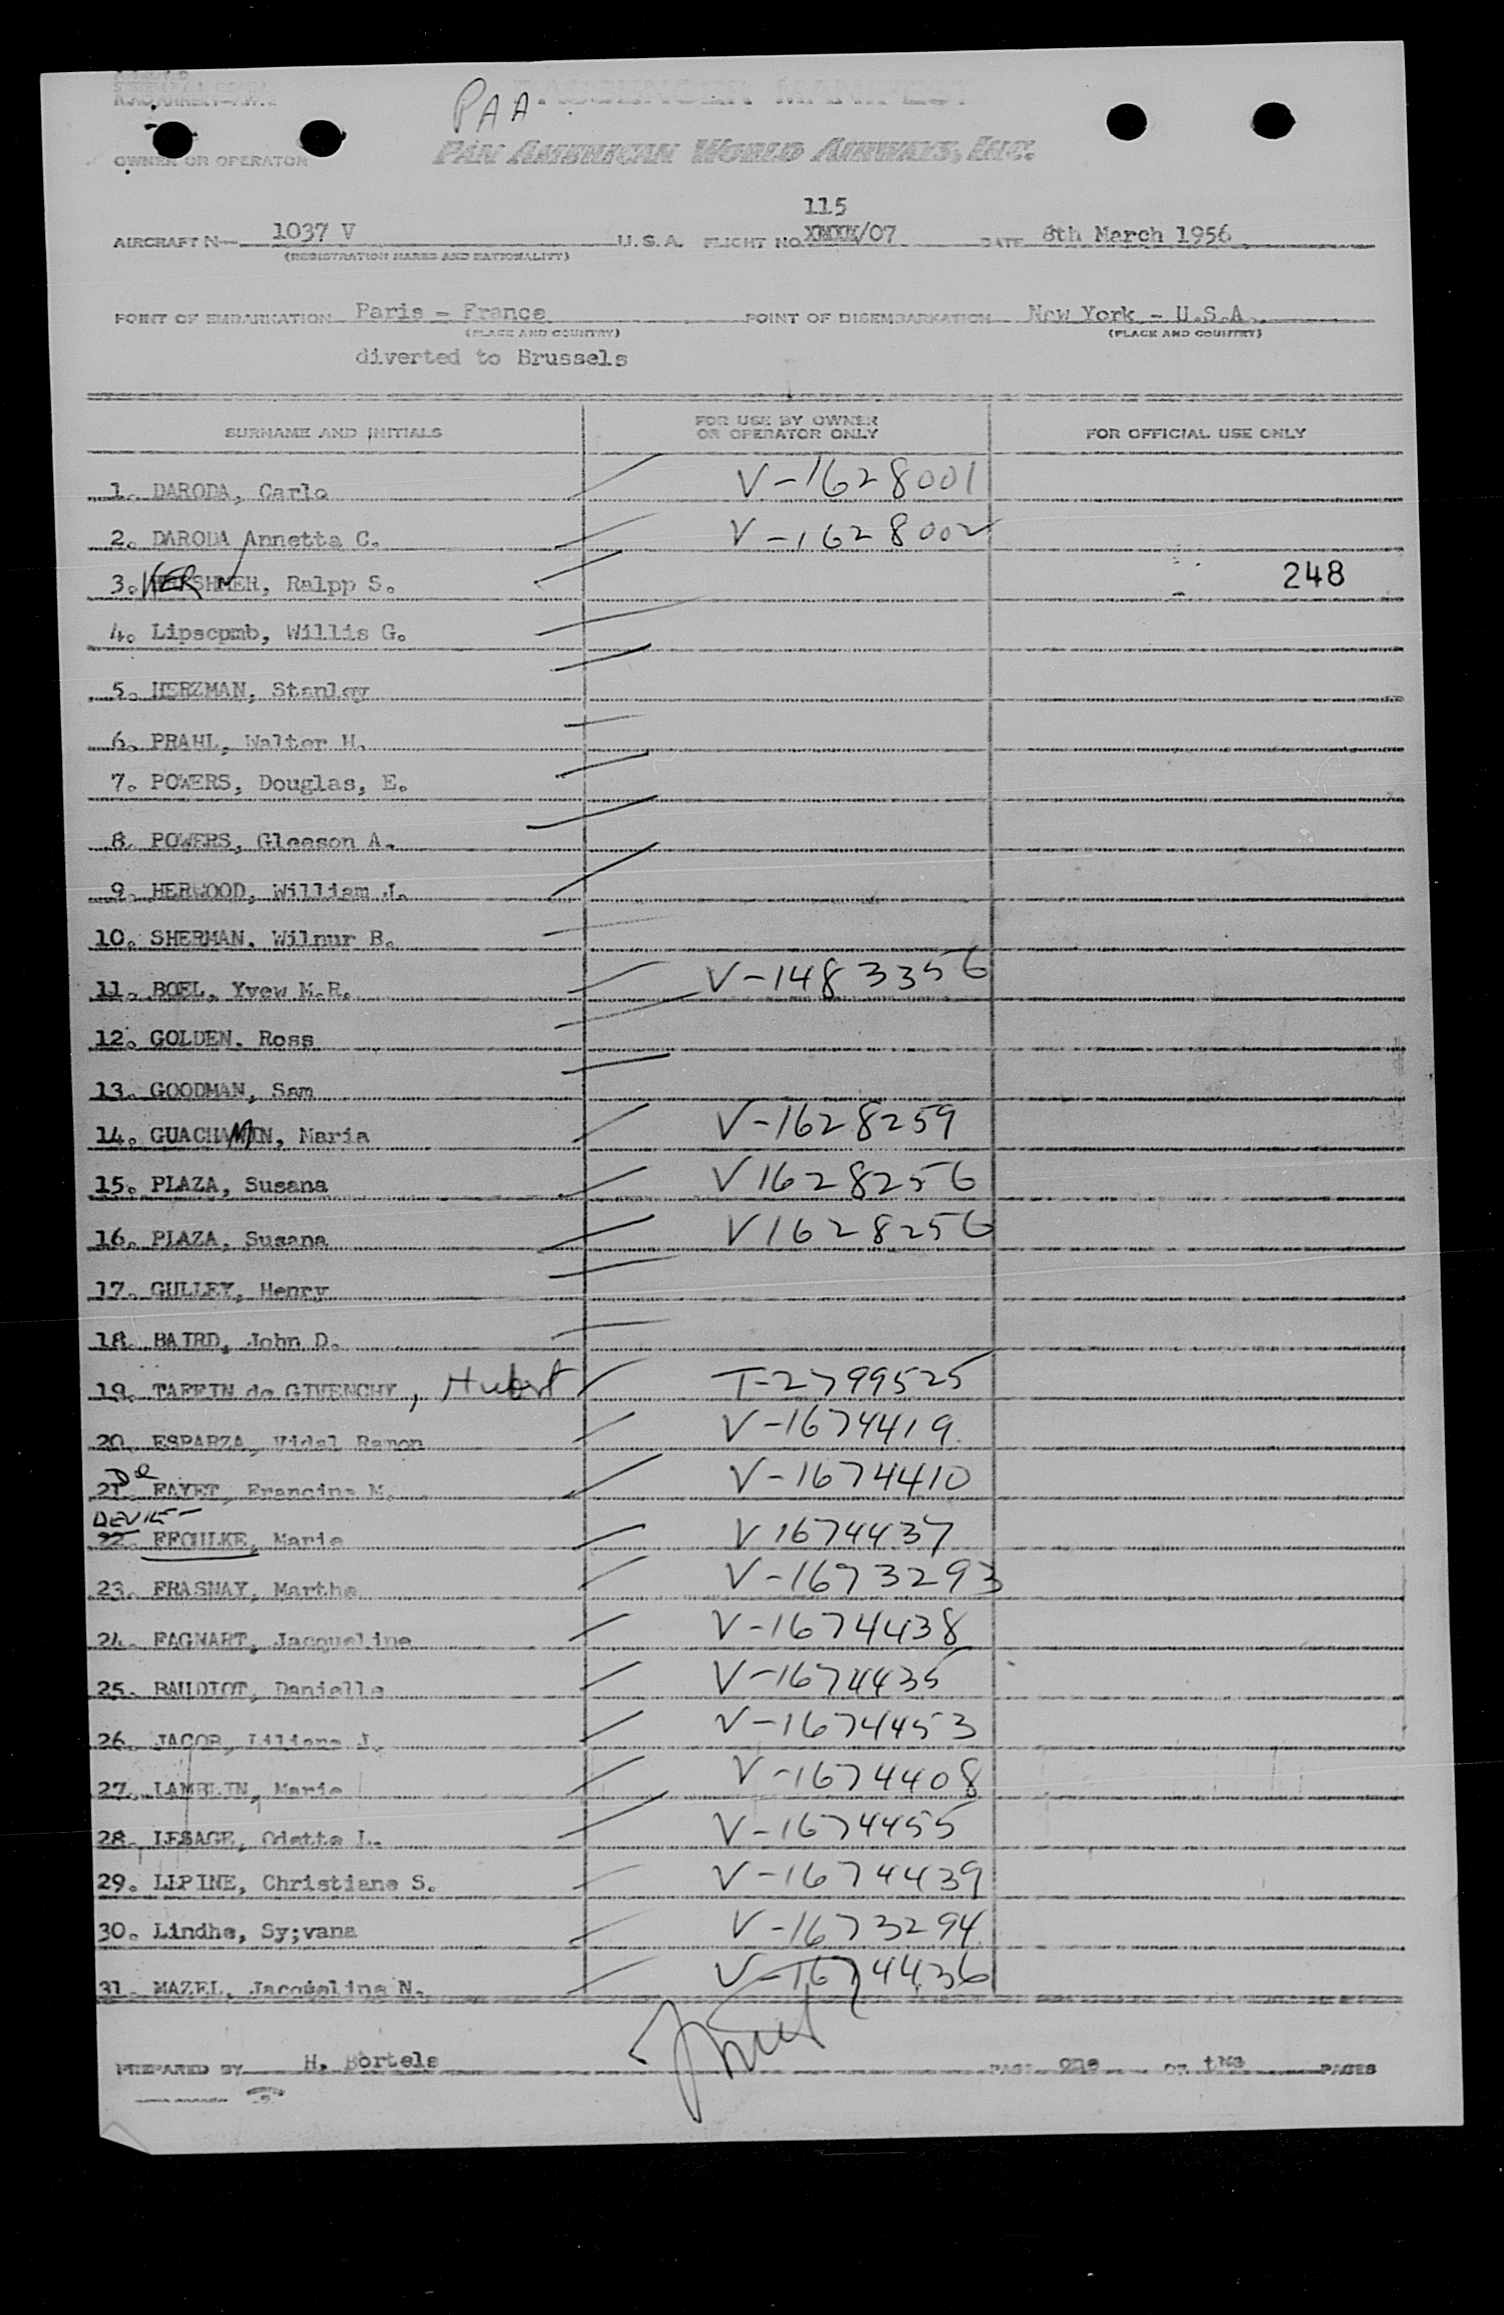 PAA
PASSENGER MANIFEST
OWNER OR OPERATOR
PAN AMERICAN WORLD AIRWAYS, INC.
115
AIRCRAFT N— 1037 V U.S.A. FLIGHT NO. /07 DATE 8th March 1956
(REGISTRATION MARKS AND NATIONALITY)
POINT OF EMBARKATION Paris - France POINT OF DISEMBARKATION New York - U.S.A.
(PLACE AND COUNTRY) (PLACE AND COUNTRY)
diverted to Brussels
SURNAME AND INITIALS FOR USE BY OWNER OR OPERATOR ONLY FOR OFFICIAL USE ONLY
1. DARODA, Carlo V-1628001
2. DARODA Annetta C. V-1628002
3. KERSHNER, Ralpp S. 248
4. Lipscpmb, Willis G.
5. HERZMAN, Stanley
6. PRAHL, Walter H.
7. POWERS, Douglas, E.
8. POWERS, Gleeson A.
9. HERWOOD, William J.
10. SHERMAN, Wilnur B.
11. BOEL, Yvew M.R. V-1483356
12. GOLDEN. Ross
13. GOODMAN, Sam
14. GUACHAMIN, Maria V-1628259
15. PLAZA, Susana V1628256
16. PLAZA, Susana V1628256
17. GULLEY, Henry
18. BAIRD, John D.
19. TAFFIN de GIVENCHY, Hubert T-2799525
20. ESPARZA, Vidal Ramon V-1674419
21. De FAYET, Francine M. V-1674410
22. FFOULKE, Marie V1674437
23. FRASNAY, Marthe V-1673293
24. FAGNART, Jacqueline V-1674438
25. BAUDIOT, Danielle V-1674435
26. JACOB, Liliane J. V-1674453
27. LAMBLIN, Marie V-1674408
28. LESAGE, Odette L. V-1674455
29. LEPINE, Christiane S. V-1674439
30. Lindhe, Sy;vana V-1673294
31. MAZEL, Jacqueline N. V-1674436
PREPARED BY H. Bortels PAGE one OF two PAGES